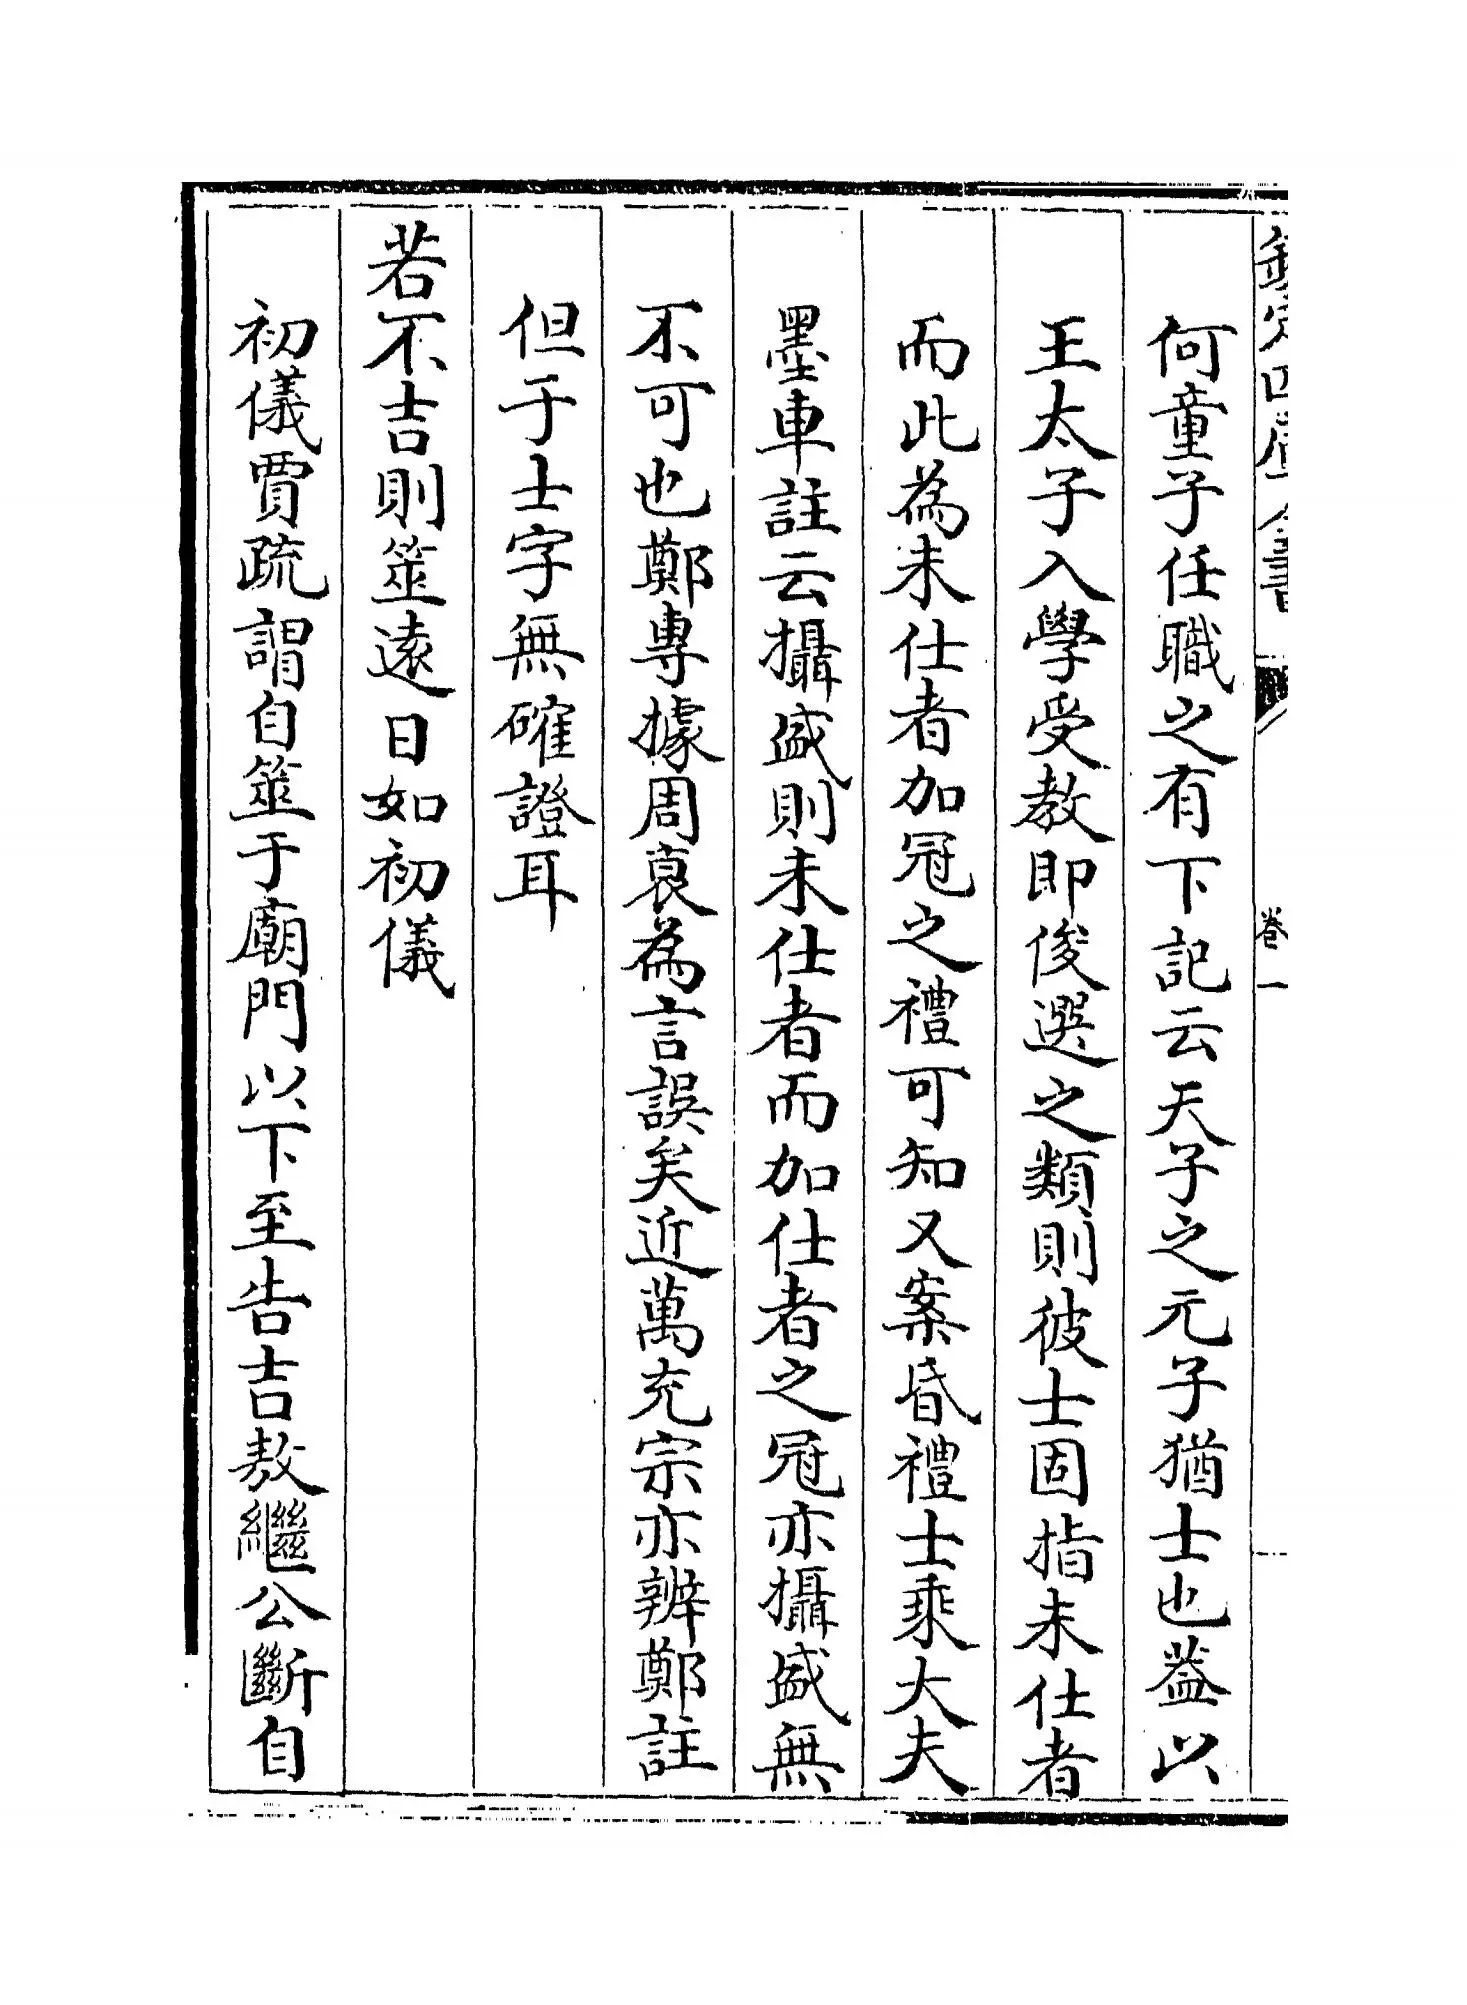 欽定四庫全書
卷一
何童子任職之有下記云天子之元子猶士也葢以
王太子入學受教即俊選之類則彼士固指未仕者
而此為未仕者加冠之禮可知又案昏禮士乘大夫
墨車註云攝盛則未仕者而加仕者之冠亦攝盛無
不可也鄭專據周衰為言誤矣近萬充宗亦辨鄭註
但于士字無確證耳
若不吉則筮遠日如初儀
初儀賈疏謂自筮于廟門以下至告吉敖繼公斷自